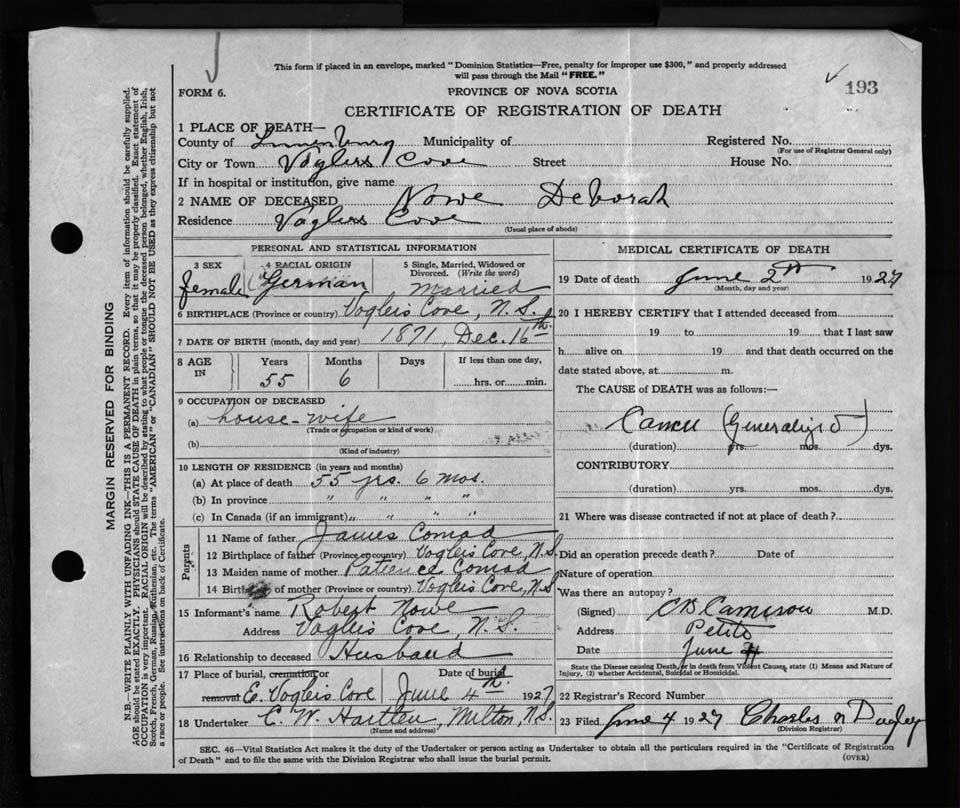 This form if placed in an envelope, marked "Dominion Statistics—Free, penalty for improper use $300," and properly addressed
will pass through the Mail "FREE."
FORM 6.
PROVINCE OF NOVA SCOTIA
193
CERTIFICATE OF REGISTRATION OF DEATH
1 PLACE OF DEATH—
County of Lunenburg Municipality of Registered No.
(For use of Registrar General only)
City or Town Voglers Cove Street House No.
If in hospital or institution, give name
2 NAME OF DECEASED Nowe Deborah
Residence Voglers Cove
(Usual place of abode)
PERSONAL AND STATISTICAL INFORMATION
3 SEX 4 RACIAL ORIGIN 5 Single, Married, Widowed or
Divorced. (Write the word)
female German Married
6 BIRTHPLACE (Province or country) Voglers Cove, N.S.
7 DATE OF BIRTH (month, day and year) 1871, Dec. 16th
8 AGE IN Years Months Days If less than one day,
55 6 hrs. or min.
9 OCCUPATION OF DECEASED
(a) house-wife
(Trade or occupation or kind of work)
(b)
(Kind of industry)
10 LENGTH OF RESIDENCE (in years and months)
(a) At place of death 55 yrs. 6 mos.
(b) In province " " " "
(c) In Canada (if an immigrant) " " " "
Parents
11 Name of father James Conrad
12 Birthplace of father (Province or country) Voglers Cove, N.S.
13 Maiden name of mother Patience Conrad
14 Birthplace of mother (Province or country) Voglers Cove, N.S
15 Informant's name Robert Nowe
Address Voglers Cove, N.S.
16 Relationship to deceased Husband
17 Place of burial, cremation or Date of burial
removal E. Voglers Cove June 4th. 1927
18 Undertaker C. W. Hartlen, Milton, N.S.
(Name and address)
MEDICAL CERTIFICATE OF DEATH
19 Date of death June 2th 1927
(Month, day and year)
20 I HEREBY CERTIFY that I attended deceased from
19 to 19 that I last saw
h alive on 19 and that death occurred on the
date stated above, at m.
The CAUSE of DEATH was as follows:—
Cancer (Generalized)
(duration) yrs. mos. dys.
CONTRIBUTORY
(duration) yrs. mos. dys.
21 Where was disease contracted if not at place of death?
Did an operation precede death? Date of
Nature of operation
Was there an autopsy?
(Signed) C B Cameron M.D.
Address Petite
Date June
State the Disease causing Death, or in death from Violent Causes, state (1) Means and Nature of
Injury, (2) whether Accidental, Suicidal or Homicidal.
22 Registrar's Record Number
23 Filed June 4 1927 Charles N Dagley
(Division Registrar)
SEC. 46—Vital Statistics Act makes it the duty of the Undertaker or person acting as Undertaker to obtain all the particulars required in the "Certificate of Registration
of Death" and to file the same with the Division Registrar who shall issue the burial permit.
(OVER)
MARGIN RESERVED FOR BINDING
N.B.—WRITE PLAINLY WITH UNFADING INK—THIS IS A PERMANENT RECORD. Every item of information should be carefully supplied.
AGE should be stated EXACTLY. PHYSICIANS should STATE CAUSE OF DEATH in plain terms, so that it may be properly classified. Exact statement of
OCCUPATION is very important. RACIAL ORIGIN will be described by stating to what people or tongue the deceased person belonged, whether English, Irish,
Scotch, French, German, Russian, Ruthenian, etc. The terms "AMERICAN" or "CANADIAN" SHOULD NOT BE USED as they express citizenship but not
a race or people. See instructions on back of Certificate.